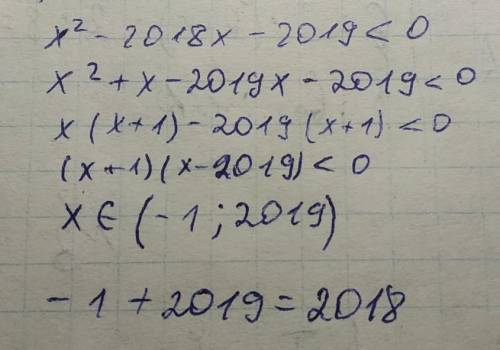 x² - 2018x - 2019 < 0
x² + x - 2019x - 2019 < 0
x (x+1) - 2019 (x+1) < 0
(x+1)(x-2019) < 0
x ∈ (-1; 2019)
-1 + 2019 = 2018